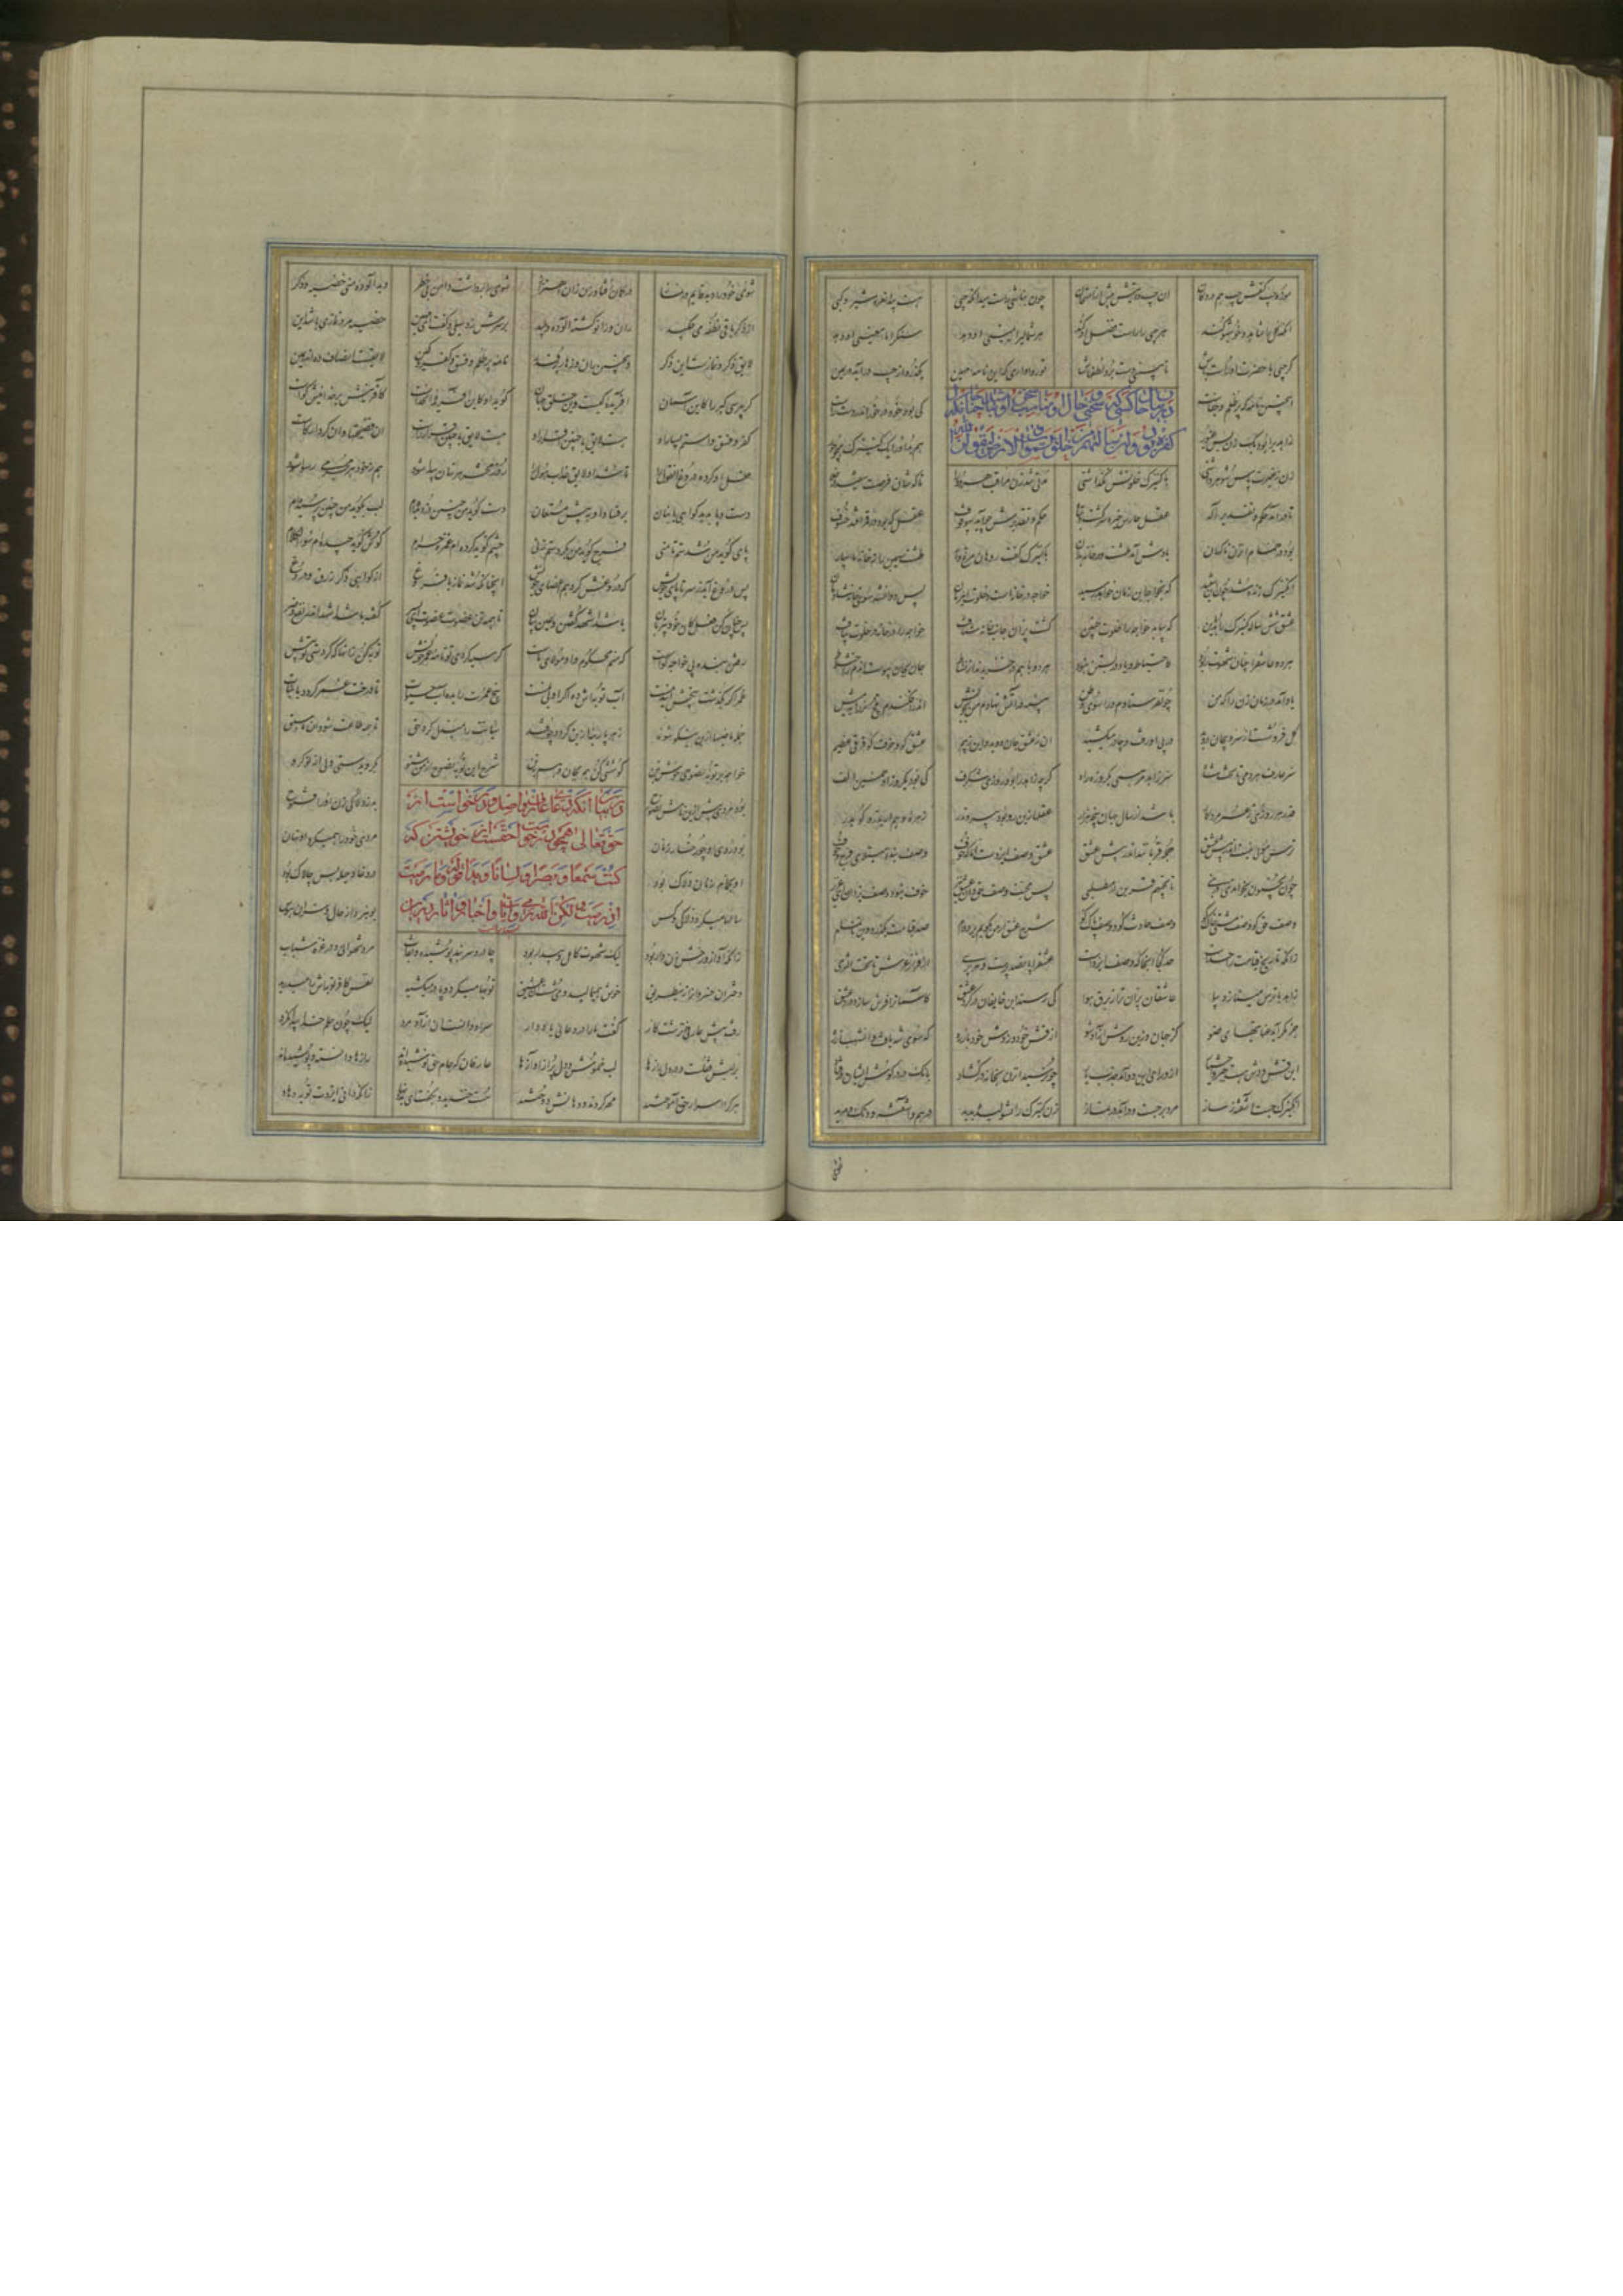 موزهٔ چپ کفش چپ هم در دکان آن چپ دانیش پیش از امتحان چون نباشی راست میدان که چپی هست پیدا نعره شیر و کپی
آنکه گل را شاهد و خوشبو کند هر چپی را راست فضل او کند هر شمالی را یمینی او دهد
گر چپی با حضرت او راست باش تا ببینی دست برد لطفهاش تو روا داری که این نامه مهین بگذرد از چپ در آید در یمین
اینچنین نامه که پر ظلم و جفاست کی بود خود در خور اندر دست راست
در بیان حال کسی که سخنی حال او مناسب آن نباشد چنانکه
کفره ولئن سالتهم من خلق السموات والارض لیقولن الله
زاهدی را بود یک زن بس غیور هم بد او را یک کنیزک همچو حور
زن ز غیرت پاس شوهر داشتی با کنیزک خلوتش نگذاشتی مدتی شد زن مراقب هر دو را تا که شان فرصت نیفتد در خلا
تا در آمد حکم و تقدیر اله عقل حارس خیره سر گشت و تباه حکم و تقدیرش چو آید بی وقوف عقل که بود در قمر افتد خسوف
بود در حمام آن زن ناگهان یادش آمد طشت و در خانه بد آن با کنیزک گفت رو هان مرغ وار طشت سیمین را ز خانه ما بیار
آن کنیزک زنده شد چون این شنید که بخواجه این زمان خواهد رسید خواجه در خانه است و خلوت این زمان پس دوان شد سوی خانه شادمان
عشق شش ساله کنیزک را بد این که بیابد خواجه را خلوت چنین گشت پران جانب خانه شتافت خواجه را در خانه در خلوت بیافت
هر دو عاشق را چنان شهوت ربود که احتیاط و یاد در بستن نبود هر دو با هم در خزیدند از نشاط جان بجان پیوست آن دم ز اختلاط
یاد آمد در زمان زن را که من چون فرستادم ورا سوی وطن پنبه در آتش نهادم من بخویش اندر افکندم قج نر را بمیش
گل فرو شست از سر و بیجان دوید در پی او رفت و چادر میکشید آن ز عشق جان دوید و این ز بیم عشق کو و خوف کو فرقی عظیم
سیر عارف هر دمی تا تخت شاه سیر زاهد هر مهی یک روزه راه گر چه زاهد را بود روزی شگرف کی بود یک روز او خمسین الف
قدر هر روزی ز عمر مرد کار باشد از سال جهان پنجه هزار عقلها زین سر بود بیرون در زهره وهم ار بدرد گو بدر
ترس مویی نیست اندر پیش عشق جمله قربانند اندر کیش عشق عشق وصف ایزدست اما که خوف وصف بنده مبتلای فرج و جوف
چون یحبون بخواندی در نبی با یحبهم قرین در مطلبی پس محبت وصف حق دان عشق نیز خوف نبود وصف یزدان ای عزیز
وصف حق کو وصف مشتی خاک کو وصف حادث کو و وصف پاک کو شرح عشق ار من بگویم بر دوام صد قیامت بگذرد و آن ناتمام
زانکه تاریخ قیامت را حدست حد کجا آنجا که وصف ایزدست عشق را پانصد پرست و هر پری از فراز عرش تا تحت الثری
زاهد با ترس میتازد بپا عاشقان پران تر از برق هوا کی رسند این خایفان در گرد عشق کآسمان را فرش سازد درد عشق
جز مگر آید عنایتهای ضو کز جهان و زین روش آزاد شو از قش خود وز دش خود باز ره که سوی شه یافت آن شهباز ره
این قش و دش هست جبر و اختیار از ورای این دو آمد جذب یار چون رسید آن زن بخانه در گشاد بانگ در در گوش ایشان در فتاد
آن کنیزک جست آشفته ز ساز مرد بر جست و در آمد در نماز زن کنیزک را پژولیده بدید درهم و آشفته و دنگ و مرید
شوی خود را دید قایم در نماز در گمان افتاد زن زان اهتزاز شوی را برداشت دامن بی خطر دید آلوده منی خصیه و ذکر
از ذکر باقی نطفه می چکید ران و زانو گشته آلوده و پلید بر سرش زد سیلی و گفت ای مهین خصیه مرد نمازی باشد این
لایق ذکر و نمازست این ذکر وین چنین ران و زهار پر قذر نامه پر ظلم و فسق و کفر و کین لایقست انصاف ده اندر یمین
گر بپرسی گبر را کاین آسمان آفریده کیست وین خلق و جهان گوید او کاین آفریده آن خداست کآفرینش بر خدایی اش گواست
کفر و فسق و استم بسیار او هست لایق با چنین اقرار او هست لایق با چنین اقرار راست آن فضیحتها و آن کردار کاست
فعل او کرده دروغ آن قول را تا شد او لایق عذاب هول را روز محشر هر نهان پیدا شود هم ز خود هر مجرمی رسوا شود
دست و پا بدهد گواهی با بیان بر فساد او بپیش مستعان دست گوید من چنین دزدیده ام لب بگوید من چنین پرسیده ام
پای گوید من شدستم تا منی فرج گوید من بکردستم زنی چشم گوید کرده ام غمزه حرام گوش گوید چیده ام سوء الکلام
پس دروغ آمد ز سر تا پای خویش که دروغش کرد هم اعضای خویش آنچنانکه در نماز با فروغ از گواهی ذکر زرق و دروغ
پس چنان کن فعل کان خود بی زبان باشد اشهد گفتن و عین بیان تا همه تن عضو عضوت ای پسر گفته باشد اشهد اندر نفع و ضر
رفتن بنده پی خواجه گواست که منم محکوم و او مولای ماست گر سیه کردی تو نامه عمر خویش توبه کن زانها که کردستی تو پیش
عمر اگر بگذشت بیخش این دمست آب توبه اش ده اگر او بی نمست بیخ عمرت را بده آب حیات تا درخت عمر گردد با ثبات
جمله ماضیها ازین نیکو شوند زهر پارینه ازین گردد چو قند سیئاتت را مبدل کرد حق تا همه طاعت شود آن ما سبق
خواجه بر توبه نصوحی خوش بتن کوششی کن هم بجان و هم بتن شرح این توبه نصوح از من شنو بگرویدستی ولی از نو گرو
در بیان آنکه دعای عارف واصل و درخواست او از
حق تعالی همچو درخواست حقست از خویشتن که
کنت له سمعا و بصرا و لسانا و یدا قوله و ما رمیت
اذ رمیت ولکن الله رمی و آیات و اخبار و آثار درین
بود مردی پیش ازین نامش نصوح بد ز دلاکی زن او را فتوح
بود روی او چو رخسار زنان مردی خود را همیکرد او نهان
او بحمام زنان دلاک بود در دغا و حیله بس چالاک بود
سالها میکرد دلاکی و کس بو نبرد از حال و سر آن هوس
زانکه آواز و رخش زن وار بود لیک شهوت کامل و بیدار بود چادر و سربند پوشیده و نقاب مرد شهوانی و در غره شباب
دختران خسروان را زین طریق خوش همی مالید و می شست آن عشیق توبه ها میکرد و پا در میکشید نفس کافر توبه اش را میدرید
رفت پیش عارفی آن زشت کار گفت ما را در دعایی یاد دار سر او دانست آن آزاد مرد لیک چون حلم خدا پیدا نکرد
بر لبش قفلست و در دل رازها لب خموش و دل پر از آوازها عارفان که جام حق نوشیده اند رازها دانسته و پوشیده اند
هر کرا اسرار حق آموختند مهر کردند و دهانش دوختند سست خندید و بگفت ای بد نهاد زانکه دانی ایزدت توبه دهاد